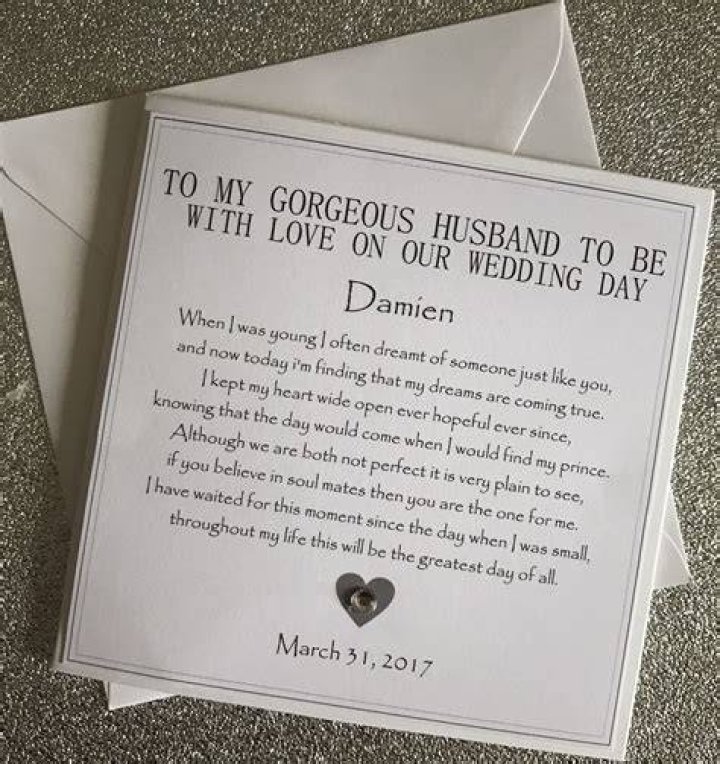 TO MY GORGEOUS HUSBAND TO BE
WITH LOVE ON OUR WEDDING DAY
Damien
When I was young I often dreamt of someone just like you,
and now today i'm finding that my dreams are coming true.
I kept my heart wide open ever hopeful ever since,
knowing that the day would come when I would find my prince.
Although we are both not perfect it is very plain to see,
if you believe in soul mates then you are the one for me.
I have waited for this moment since the day when I was small,
throughout my life this will be the greatest day of all.
March 31, 2017